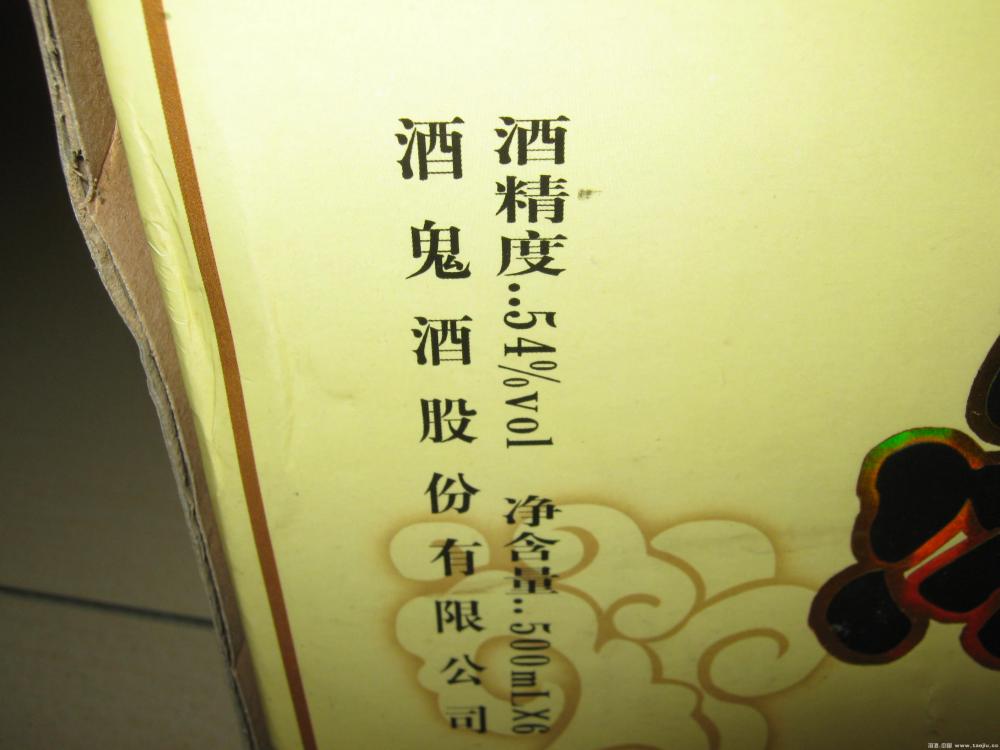 酒精度:54%vol 净含量:500mLX6
酒鬼酒股份有限公司
www.taojiu.cc